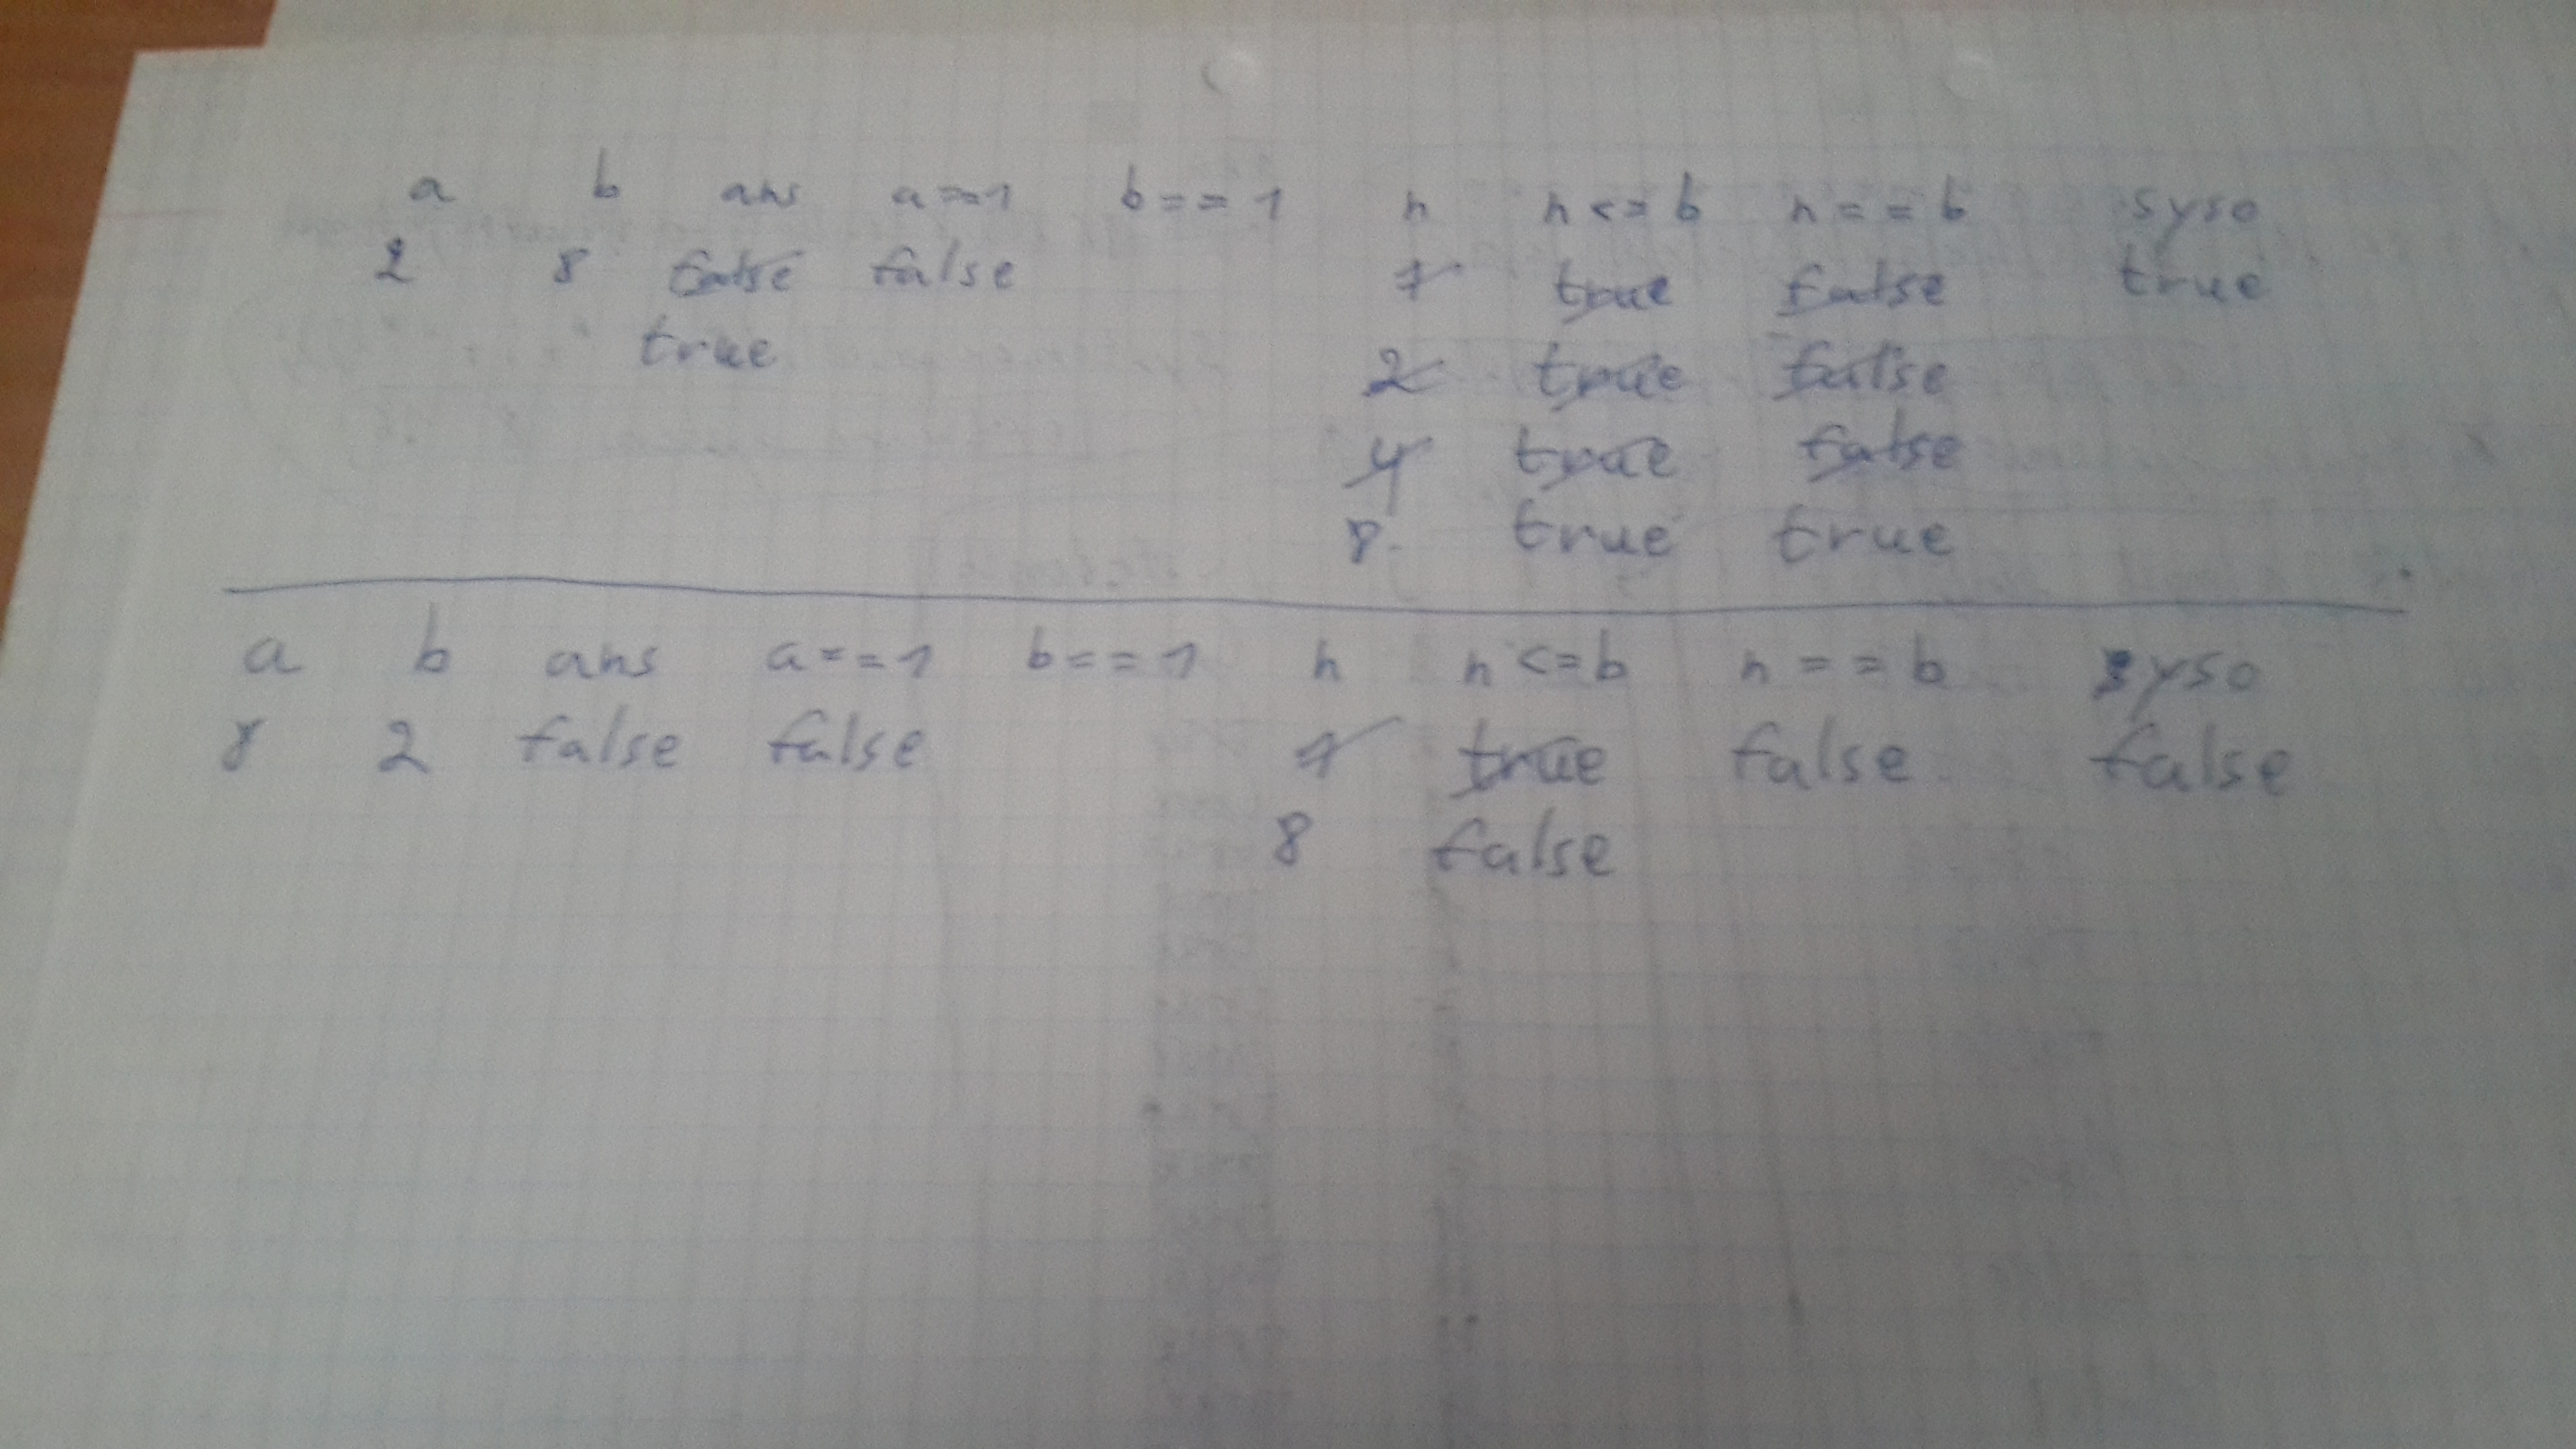 a b ans a==1 b==1 n n<=b n==b syso
2 8 false false 1 true false true
true 2 true false
4 true false
8 true true
a b ans a==1 b==1 n n<=b n==b syso
8 2 false false 1 true false false
8 false